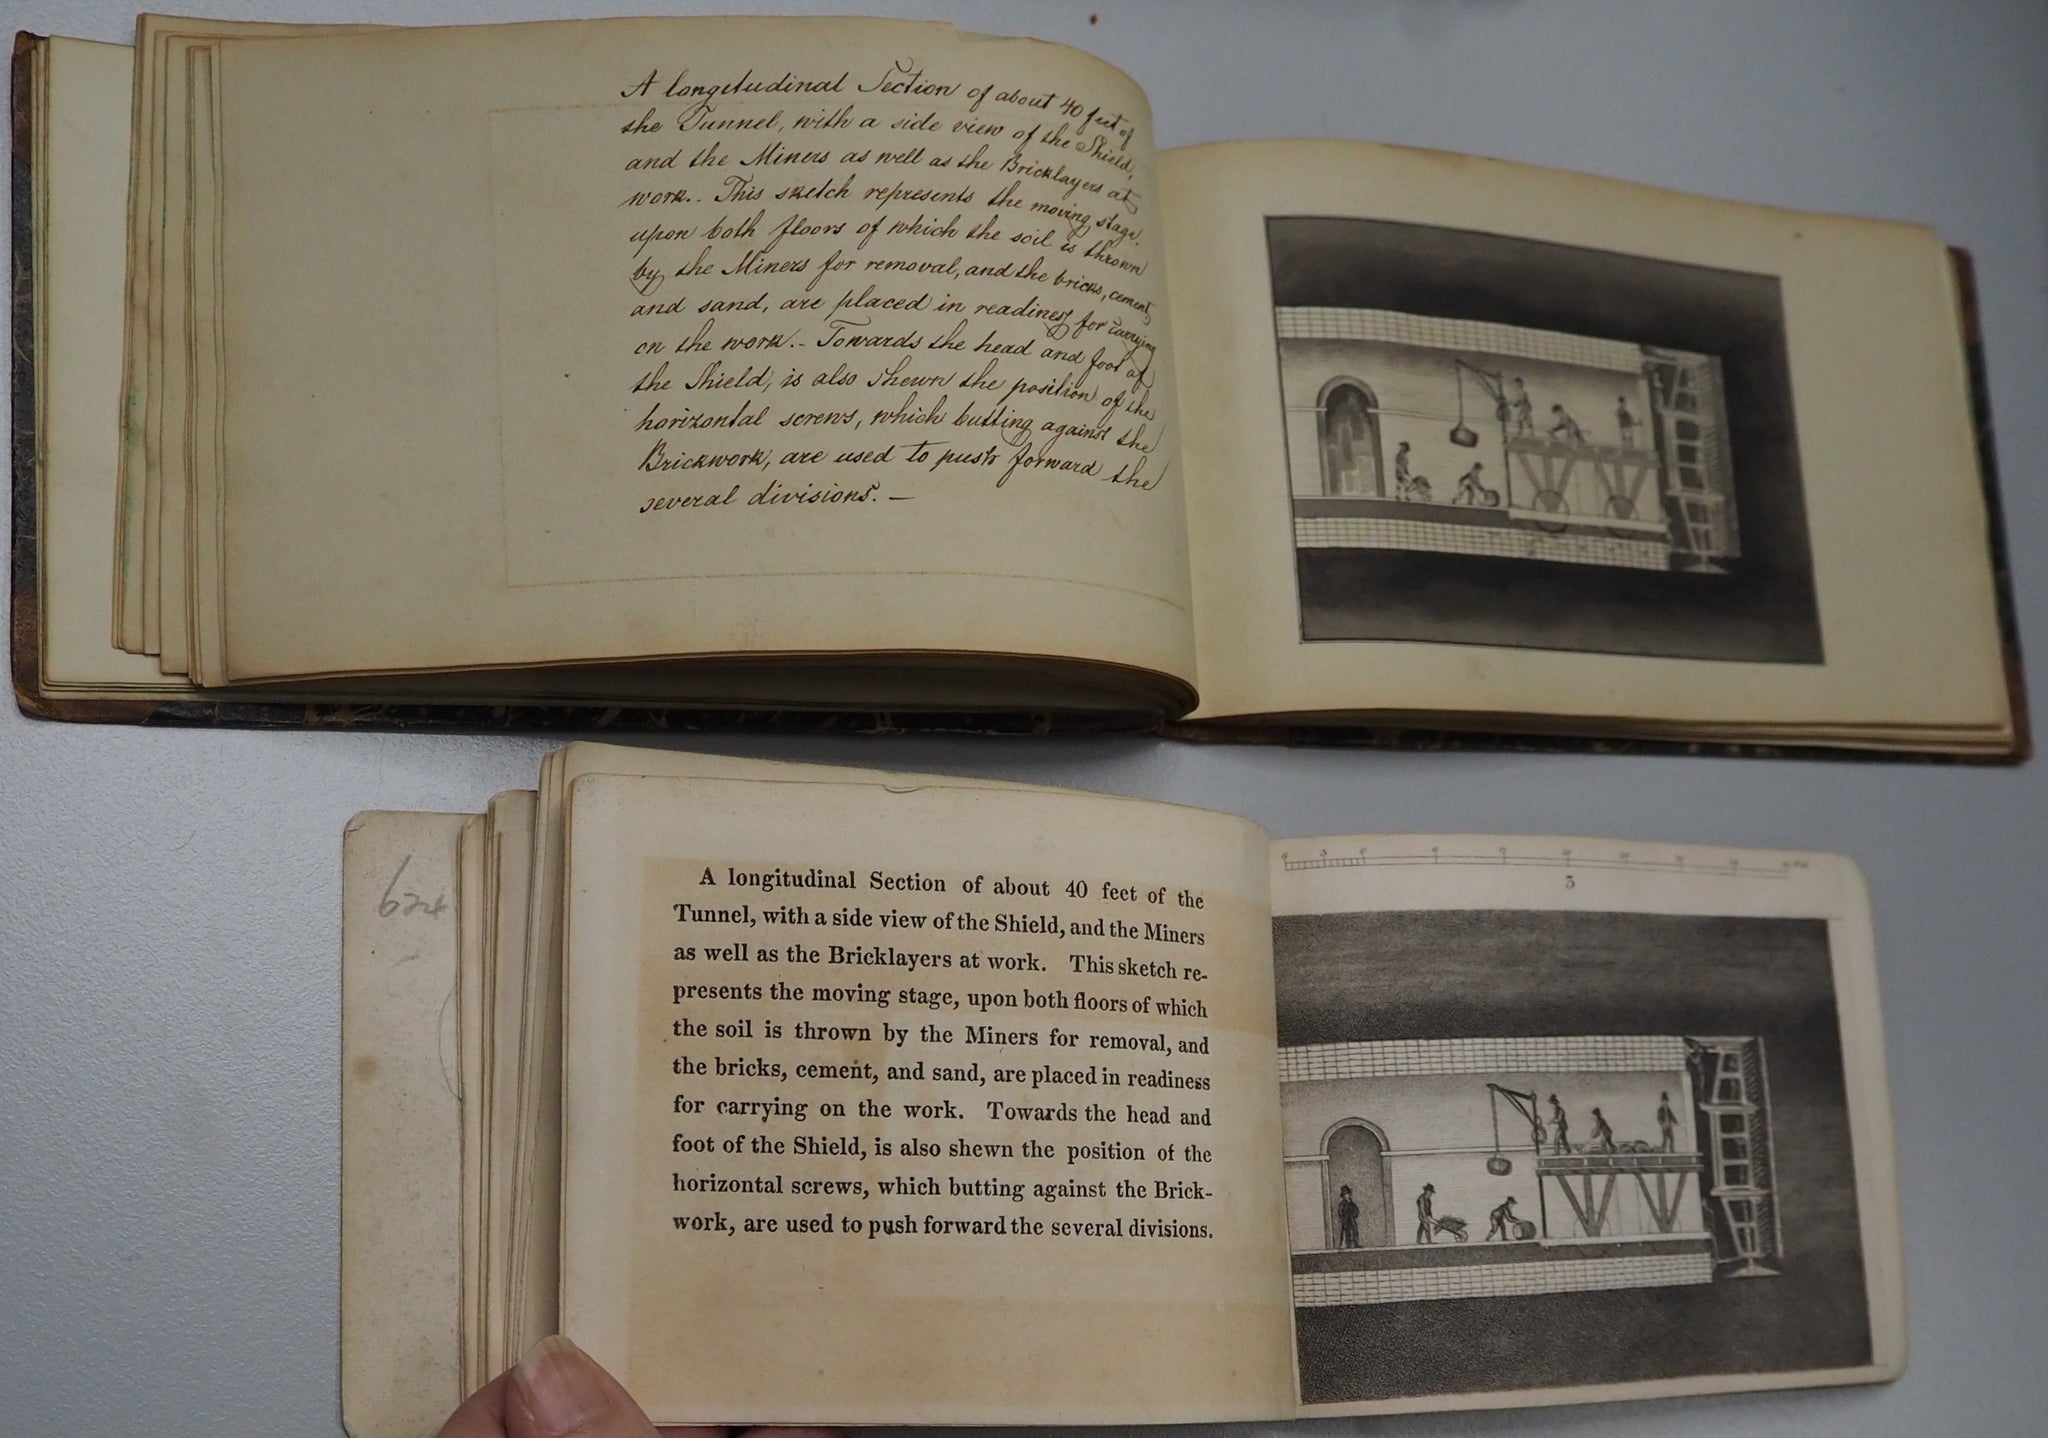 A longitudinal Section of about 40 feet of
the Tunnel, with a side view of the Shield,
and the Miners as well as the Bricklayers at
work.. This sketch represents the moving stage.
upon both floors of which the soil is thrown
by the Miners for removal, and the bricks, cement,
and sand, are placed in readiness for carrying
on the work.- Towards the head and foot of
the Shield, is also shewn the position of the
horizontal screws, which butting against the
Brickwork, are used to push forward the
several divisions. —
624
A longitudinal Section of about 40 feet of the
Tunnel, with a side view of the Shield, and the Miners
as well as the Bricklayers at work. This sketch re-
presents the moving stage, upon both floors of which
the soil is thrown by the Miners for removal, and
the bricks, cement, and sand, are placed in readiness
for carrying on the work. Towards the head and
foot of the Shield, is also shewn the position of the
horizontal screws, which butting against the Brick-
work, are used to push forward the several divisions.
3